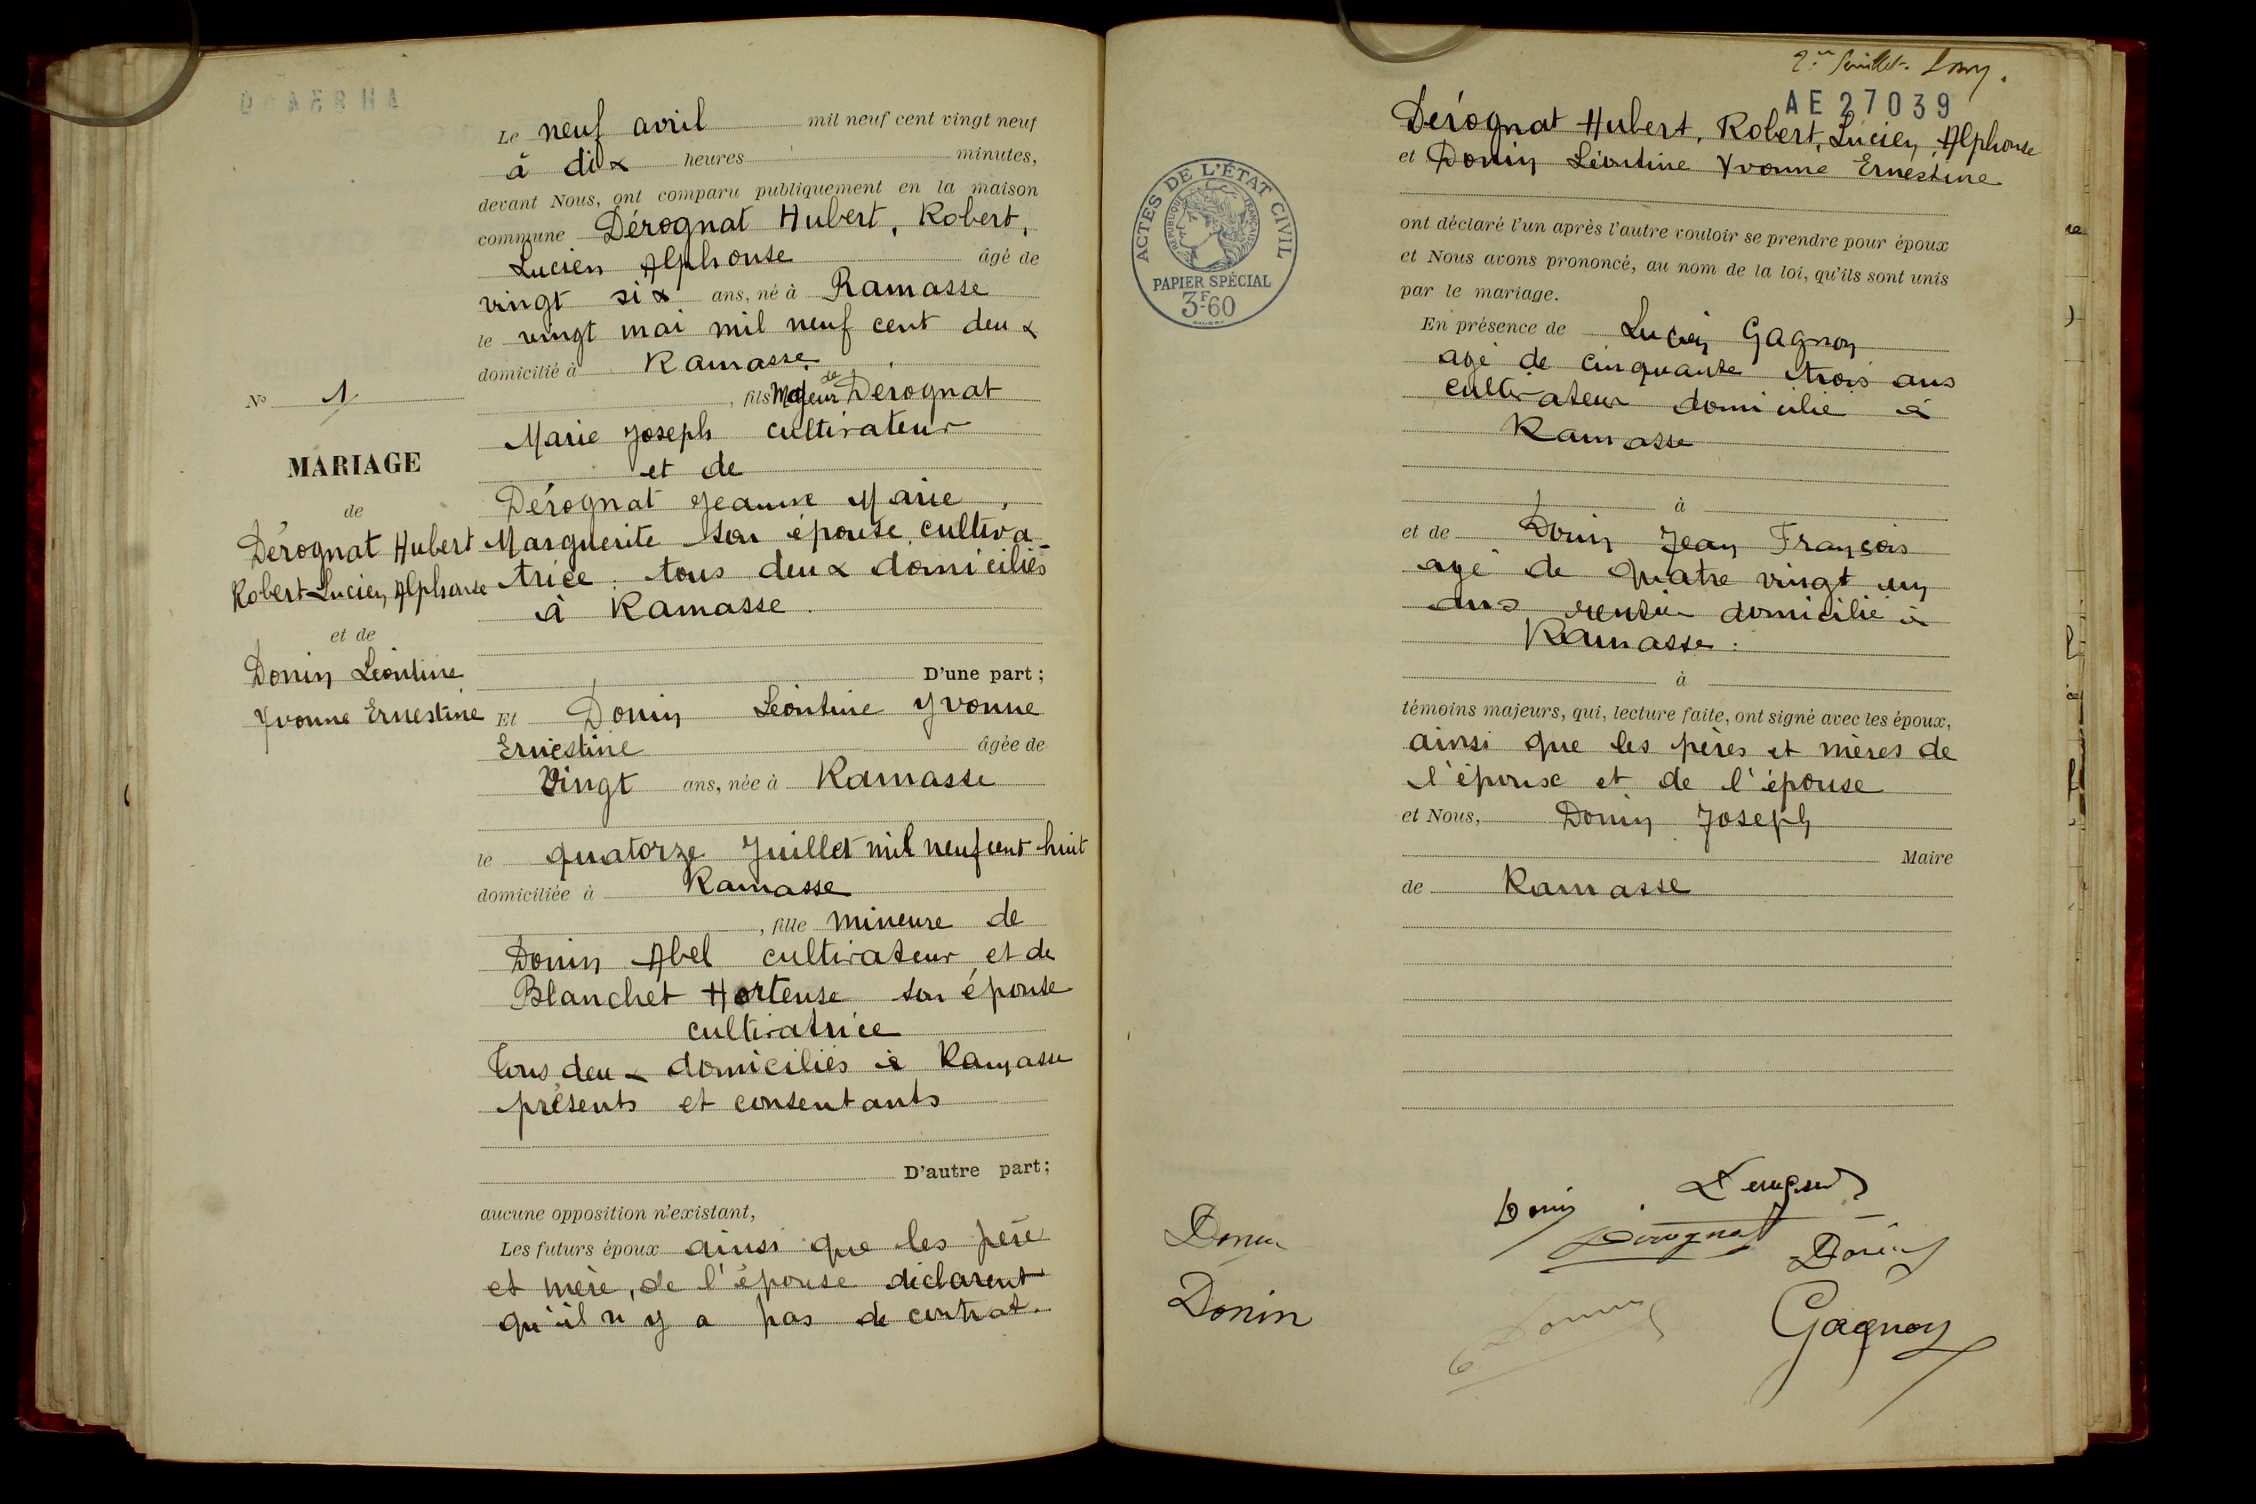 Le neuf avril mil neuf cent vingt neuf
à dix heures minutes,
devant Nous, ont comparu publiquement en la maison
commune Dérognat Hubert, Robert,
Lucien Alphonse âgé de
vingt six ans, né à Ramasse
le vingt mai mil neuf cent deux
domicilié à Ramasse
, fils Majeur de Dérognat
Marie Joseph cultivateur
et de
Dérognat Jeanne Marie,
Marguerite son épouse, cultiva-
trice. tous deux domiciliés
à Ramasse.
D'une part;
Et Donin Léontine Yvonne
Ernestine âgée de
Vingt ans, née à Ramasse
le quatorze Juillet mil neuf cent huit
domiciliée à Ramasse
, fille mineure de
Donin Abel cultivateur et de
Blanchet Hortense son épouse
cultivatrice
Tous deux domiciliés à Ramasse
présents et consentants
D'autre part;
aucune opposition n'existant,
Les futurs époux ainsi que les père
et mère, de l'épouse déclarent
qu'il n y a pas de contrat.
No 1
MARIAGE
de
Dérognat Hubert
Robert Lucien Alphonse
et de
Donin Léontine
Yvonne Ernestine
2me feuillet.
AE 27039
Dérognat Hubert, Robert, Lucien, Alphonse
et Donin Léontine Yvonne Ernestine
ont déclaré l'un après l'autre vouloir se prendre pour époux
et Nous avons prononcé, au nom de la loi, qu'ils sont unis
par le mariage.
En présence de Lucien Gagnon
agé de cinquante trois ans
cultivateur domicilié à
Ramasse
à
et de Donin Jean François
agé de quatre vingt un
ans rentier domicilié à
Ramasse.
à
témoins majeurs, qui, lecture faite, ont signé avec les époux,
ainsi que les pères et mères de
l'épouse et de l'épouse
et Nous, Donin Joseph
Maire
de Ramasse
ACTES DE L'ÉTAT CIVIL
RÉPUBLIQUE FRANÇAISE
PAPIER SPÉCIAL
3F60
Donin
Dérognat
Donin
Donin
Donin
Gagnon